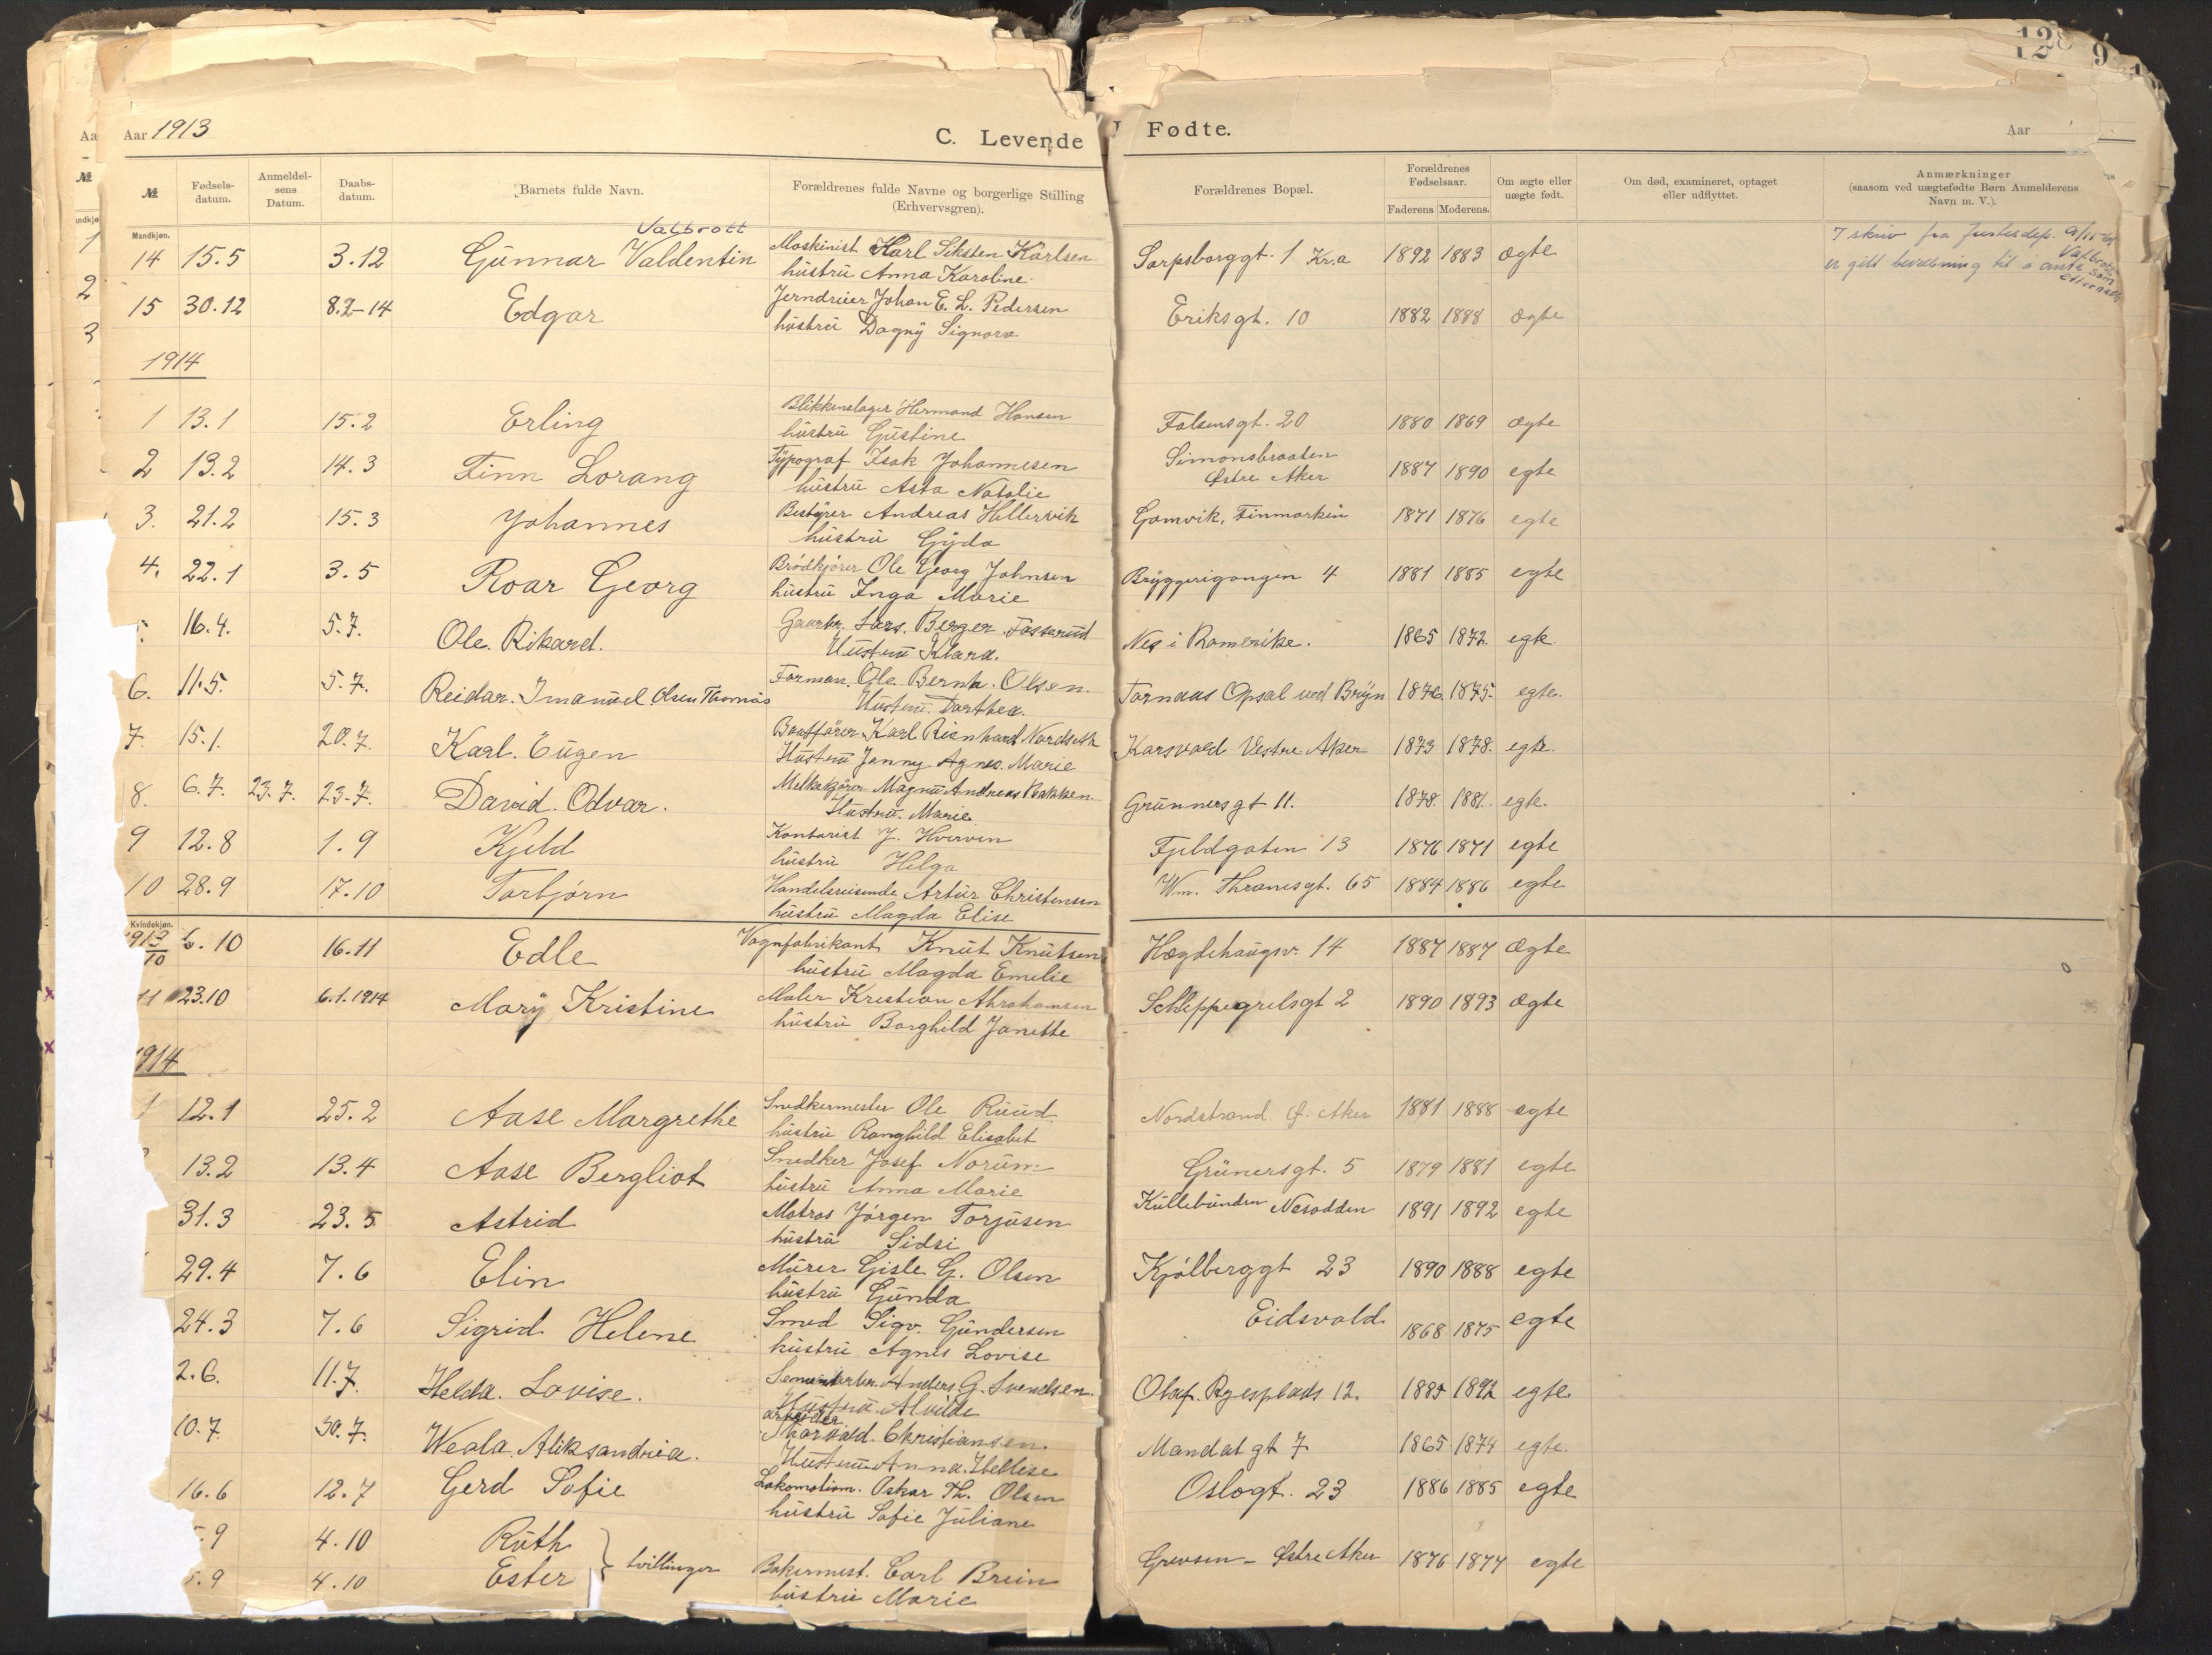 128
9
Aa
Aar 1913
C. Levende
Fødte.
Aar
№
№
Fødsels-
datum.
Anmeldel-
sens
Datum.
Daabs-
datum.
Barnets fulde Navn.
Forældrenes fulde Navne og borgerlige Stilling
(Erhvervsgren).
Forældrenes Bopæl.
Forældrenes
Fødselsaar.
Faderens Moderens.
Om ægte eller
uægte født.
Om død, examineret, optaget
eller udflyttet.
Anmærkninger
(saasom ved uægtefødte Børn Anmelderens
Navn m. V.).
Mandkjøn.
1
2
3
Valbrott
14 15.5 3.12 Gunnar Valdentin Maskinist Karl Siksten Karlsen Sarpsborggt. 1 Kr.a 1892 1883 ægte
hustru Anna Karoline
I skriv fra justisdep.
er gitt bevilling til å Valbrott som
15 30.12 8.2-14 Edgar Jerndreier Johan E. L. Pedersen Eriksgt. 10 1882 1888 ægte
hustru Dagny Signora
1914
1 13.1 15.2 Erling Blikkenslager Hermand Hansen Falsensgt. 20 1880 1869 ægte
hustru Gustine
2 13.2 14.3 Finn Lorang Typograf Isak Johannesen Simonsbraaten
Østre Aker 1887 1890 egte
hustru Asta Natalie
3. 21.2 15.3 Johannes Bestyrer Andreas Hellervik Gamvik, Finmarken 1871 1876 egte
hustru Gyda
4. 22.1 3.5 Roar Georg Brødkjører Ole Georg Johnsen Bryggerigangen 4 1881 1885 egte
hustru Inga Marie
16.4. 5.7. Ole. Rikard. Gaarbr. Lars. Berger. Fosserud Nes i Romerike. 1865 1872. egte.
Hustru Klara.
6. 11.5. 5.7. Reidar. Imanuel. Olsen Tharnås Forman. Ole. Bernh. Olsen. Tornaas Opsal ved Bryn 1876. 1875. egte.
Hustru. Darthea.
7. 15.1. 20.7. Karl. Eugen Karl Rienhard Nordseth Korsvold Vestre Aker 1873 1878. egte.
Hustru Jenny Agnes. Marie
8. 6.7. 23.7. 23.7. David. Odvar. Melkekjører Magnu Andreas Bakken. Grunnersgt 11. 1878. 1881. egte.
Hustru. Marie.
9 12.8 1.9 Kjeld Kontorist J. Hverven Fjeldgaten 13 1876 1871 egte
hustru Helga
10 28.9 17.10 Torbjørn Handelsreisende Artur Christensen Wm. Thranesgt. 65 1884 1886 egte
hustru Magda Elise
Kvindekjøn.
1913
10 6.10 16.11 Edle Vognfabrikant Knut Knutsen Hægdehaugsv. 14 1887 1887 ægte
hustru Magda Emelie
11 23.10 6.1.1914 Mary Kristine Maler Kristian Abrahamsen Schleppegrelsgt 2 1890 1893 ægte
hustru Borghild Janette
1914
1 12.1 25.2 Aase Margrethe Snedkermester Ole Ruud Nordstrand Ø. Aker 1881 1888 egte
hustru Ranghild Elisabet
13.2 13.4 Aase Bergliot Snedker Josef Norum Grünersgt. 5 1879 1881 egte
hustru Anna Marie
31.3 23.5 Astrid Matros Jørgen Torjusen Kullebunden Nesodden 1891 1892 egte
hustru Sidsi
29.4 7.6 Elin Murer Gisle G. Olsen Kjølberggt 23 1890 1888 egte
hustru Gunda
24.3 7.6 Sigrid Helene Smed Sigv. Gundersen Eidsvold 1868 1875 egte
hustru Agnes Lovise
2.6. 11.7. Helda. Lovise. Anders. G. Svendsen. Olaf. Ryesplads 12. 1885 1892 egte.
Hustru. Alvilde
arbeider
10.7. 30.7. Weala. Aliksandria. Thorvald. Christiansen. Mandalgt 7. 1865 1874 egte.
Hustru Anna. Hellese
16.6 12.7 Gerd Sofie Lokomotivm. Oskar Th. Olsen Oslogt. 23 1886 1885 egte
hustru Sofie Juliane
.9 4.10 Ruth
tvillinger
.9 4.10 Ester Bakermest. Carl Brein Grevsen – Østre Aker 1876 1877 egte
hustru Marie